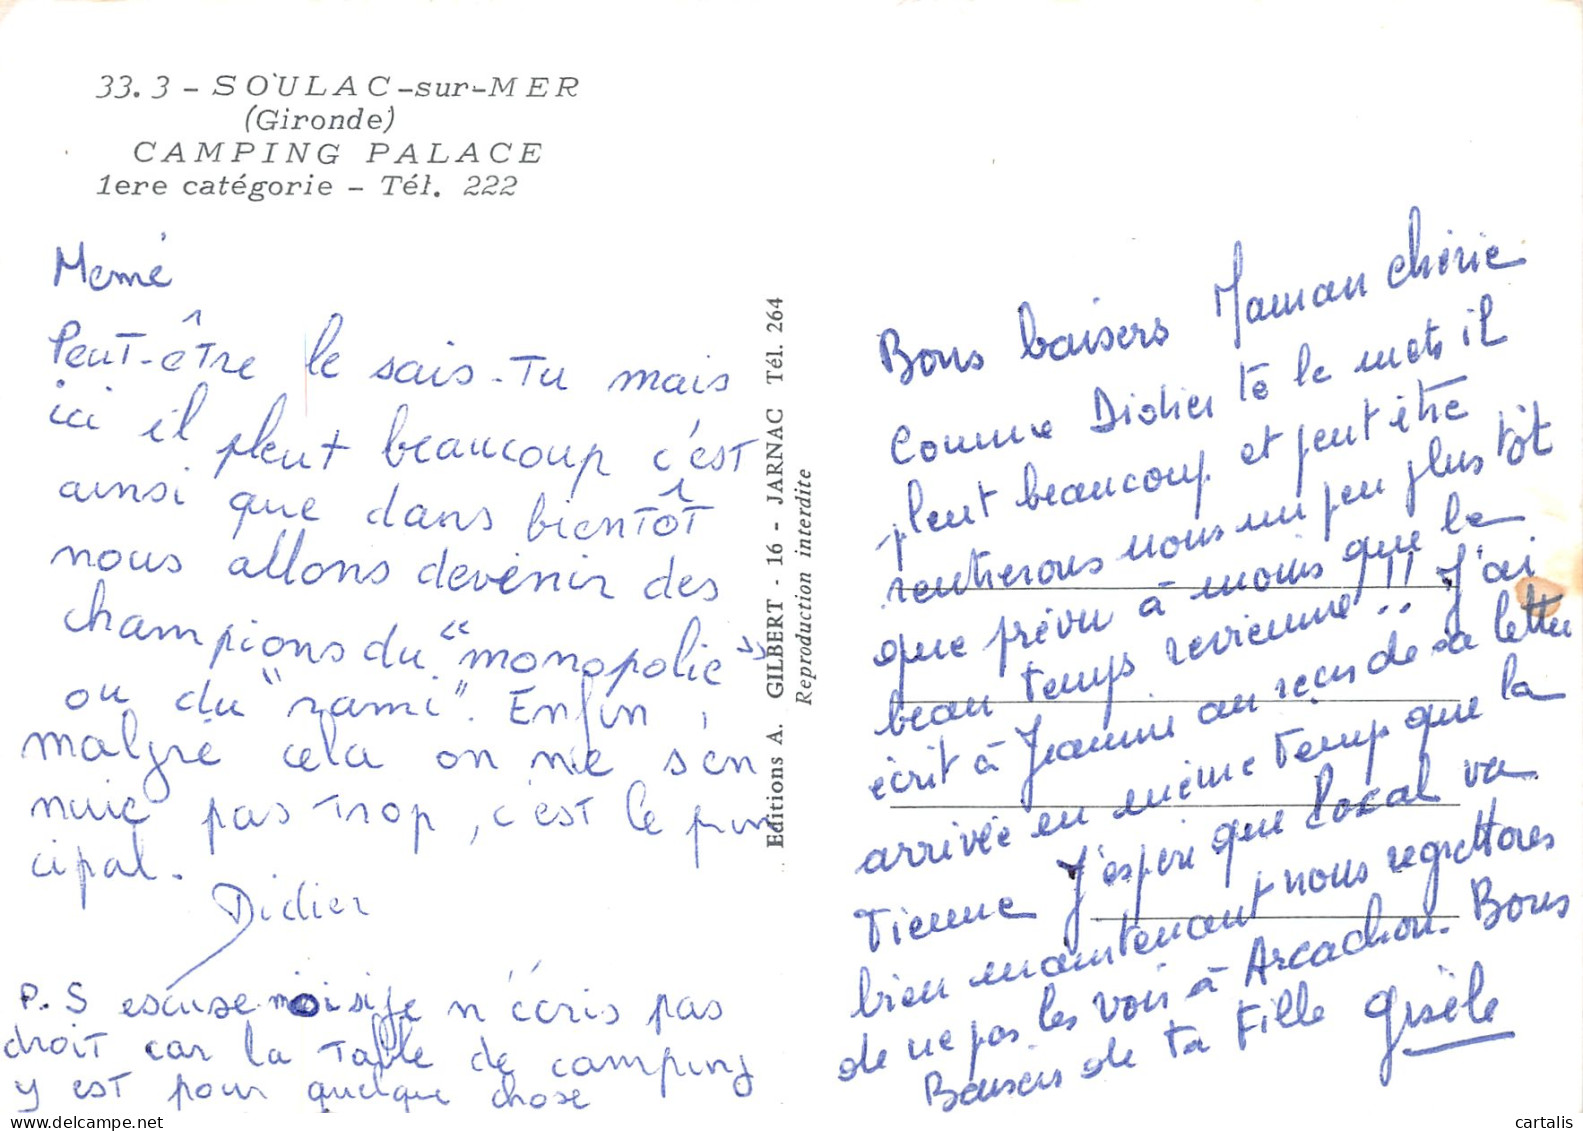 33.3 - SOULAC-sur-MER
(Gironde)
CAMPING PALACE
1ere catégorie - Tél. 222
Memé
Peut-être le sais-tu mais
ici il pleut beaucoup c'est
ainsi que dans bientôt
nous allons devenir des
champions du "monopolie"
ou du "rami". Enfin,
malgré cela on ne s'en
nuie pas trop, c'est le prin
cipal.
Didier
P.S escuse moi si je n'écris pas
droit car la table de camping
y est pour quelque chose
Editions A. GILBERT - 16 - JARNAC Tél. 264
Reproduction interdite
Bons baisers Maman chérie
Comme Didier te le mets il
pleut beaucoup et peut être
rentrerons nous un peu plus tôt
que prévu à moins que le
beau temps revienne!! J'ai
écrit à Jeanne au reçu de sa lettre
arrivée en même temp que la
Tienne J'espère que va
bien maintenant nous regrettons
de ne pas les voir à Arcachon. Bons
Baisers de ta fille Gisèle
cartalis